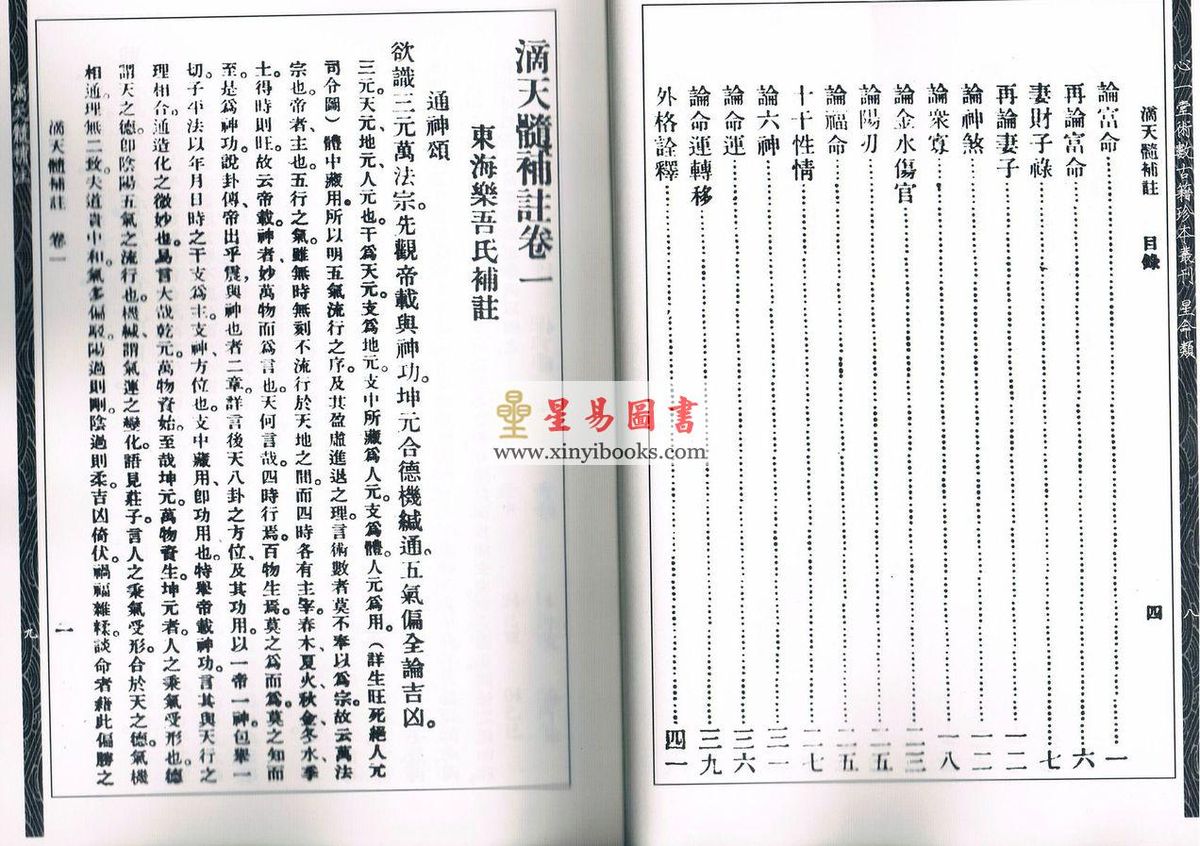 心一堂術數古籍珍本叢刊 星命類
八
滴天髓補註 目錄
四
論富命 一
再論富命 六
妻財子祿 七
再論妻子 一二
論神煞 一二
論衆尊 一八
論金水傷官 二三
論陽刃 二五
論福命 二五
十干性情 二七
論六神 三一
論命運 三六
論命運轉移 三九
外格詮釋 四一
星易圖書
www.xinyibooks.com
滴天髓補註卷一
東海樂吾氏補註
通神頌
欲識三元萬法宗。先觀帝載與神功。坤元合德機緘通。五氣偏全論吉凶。
三元天元、地元、人元也。干爲天元。支爲地元。支中所藏爲人元。支爲體。人元爲用。(詳生旺死絕人元
司令圖)體中藏用。所以明五氣流行之序。及其盈虛進退之理。言術數者莫不奉以爲宗。故云萬法
宗也。帝者、主也。五行之氣。雖無時無刻不流行於天地之間。而四時各有主宰。春木、夏火、秋金、冬水、季
土。得時則旺。故云帝載。神者妙萬物而爲言也。天何言哉。四時行焉。百物生焉。莫之爲而爲。莫之知而
至。是爲神功。說卦傳帝出乎震、與神也者二章。詳言後天八卦之方位。及其功用。以一帝一神。包舉一
切。子平法以年月日時之干支爲主。支神方位也。支中藏用。卽功用也。特舉帝載神功。言其與天行之
理相合。通造化之微妙也。易言大哉乾元。萬物資始。至哉坤元。萬物資生。坤元者。人之秉氣受形也。德
謂天之德。卽陰陽五氣之流行也。機緘、謂氣運之變化。語見莊子。言人之秉氣受形。合於天之德。氣機
相通。理無二致。夫道貴中和。氣多偏駁。陽過則剛。陰過則柔。吉凶倚伏。禍福雜糅。談命者藉此偏勝之
滴天髓補註 卷一
一
滴天髓補註
九